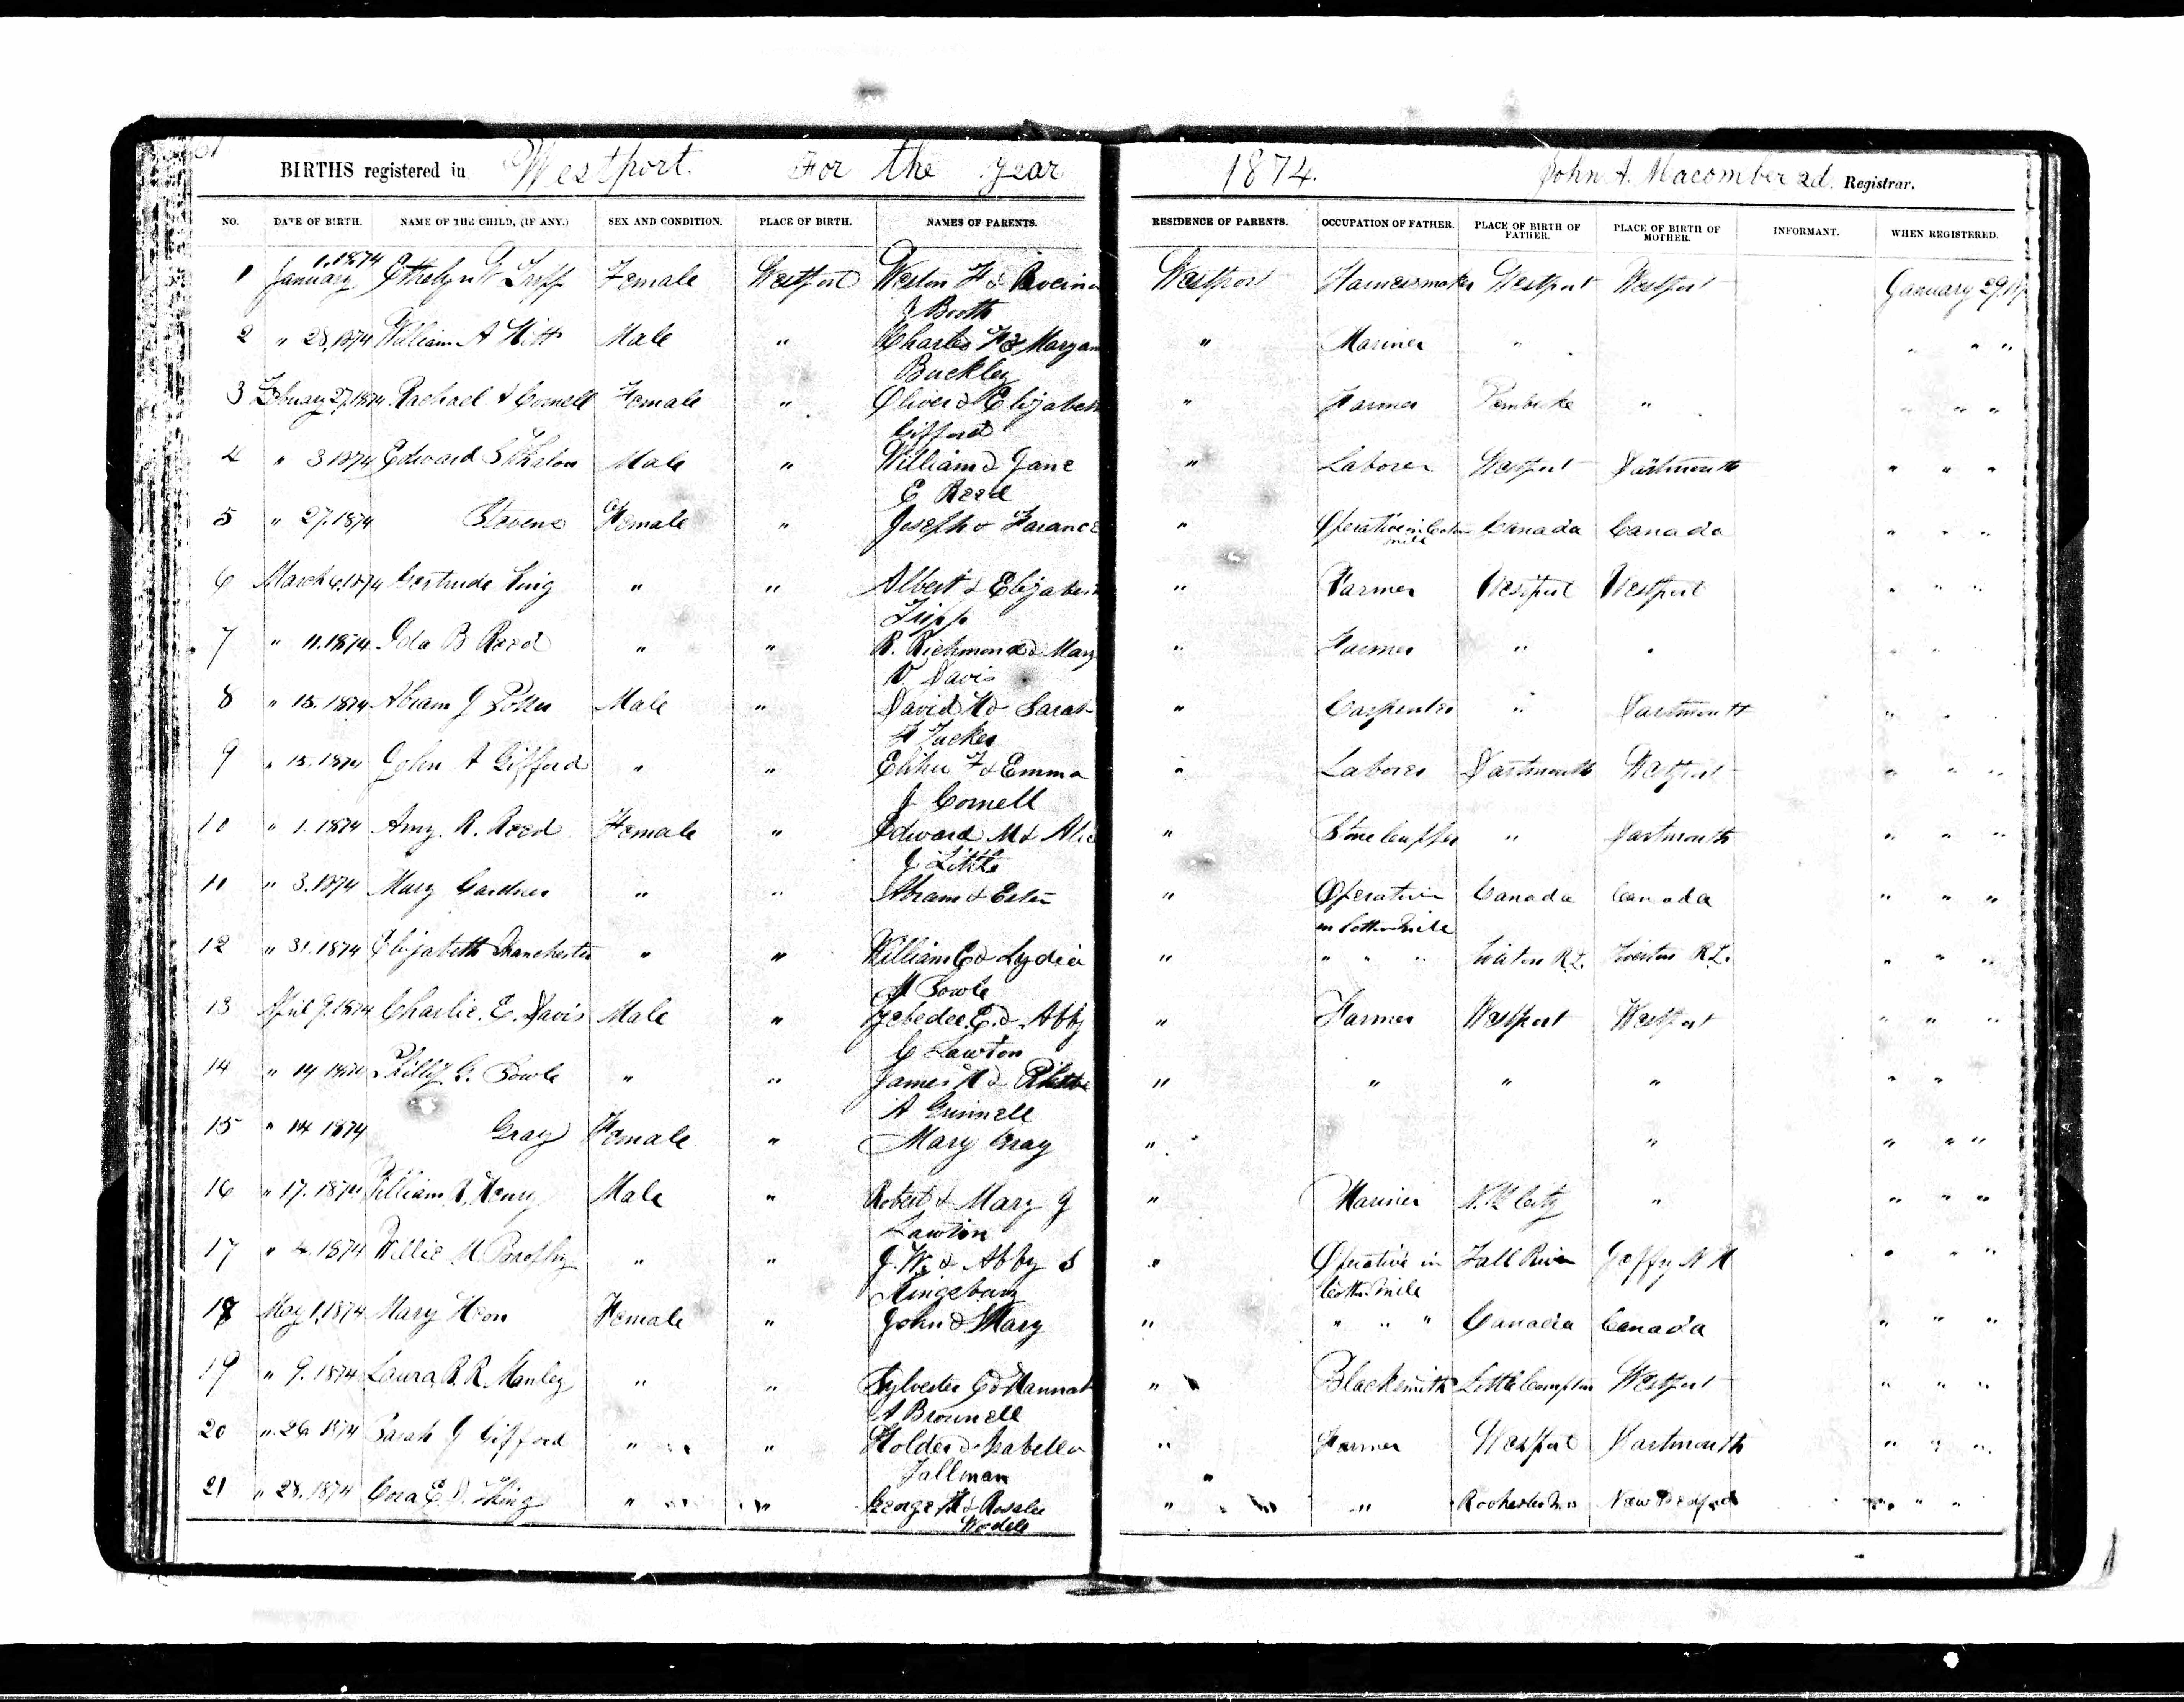 BIRTHS registered in Westport. For the Year 1874. John A. Macomber 2d. Registrar.
NO. DATE OF BIRTH. NAME OF THE CHILD, (IF ANY.) SEX AND CONDITION. PLACE OF BIRTH. NAMES OF PARENTS. RESIDENCE OF PARENTS. OCCUPATION OF FATHER. PLACE OF BIRTH OF FATHER. PLACE OF BIRTH OF MOTHER. INFORMANT. WHEN REGISTERED.
1 January 1, 1874 Tripp Female Westport Weston F & Westport Harnessmaker Westport Westport January 29,
J Booth
2 " 28, 1874 William A Hitt Male " Charles F & Maryann " Mariner " " " "
Buckley
3 February 27, 1874 Rachael A Cornell Female " Oliver & Elizabeth " Farmer Pembroke " " " "
Gifford
4 " 3 1874 Edward S Male " William & Jane " Laborer Westport Dartmouth " " "
E Reed
5 " 27. 1874 Stevens Female " Joseph & " Operative in Cotton mill Canada Canada " " "
6 March 6, 1874 Gertrude King " " Albert & Elizabeth " Farmer Westport Westport " " "
Tripp
7 " 11. 1874 Ida B Reed " " R. Richmond & Mary " Farmer " " " "
V Davis
8 " 13. 1874 Abram J Potter Male " David H & Sarah " Carpenter " Dartmouth " "
F Tucker
9 " 13. 1874 John A Gifford " " Elihu F & Emma " Laborer Dartmouth Westport " " "
J Cornell
10 " 1. 1874 Amy. R. Reed Female " Edward M & Alice " Stone " Dartmouth " " "
J Little
11 " 3. 1874 Mary Gardner " " Abram & " Operative Canada Canada " " "
in Cotton Mill
12 " 31. 1874 Elizabeth Manchester " " William E & Lydia " " " " Tiverton R.I. Tiverton R.I. " " "
M Sowle
13 April 9. 1874 Charlie. E. Davis Male " Zebedee. E. & Abby " Farmer Westport Westport " " "
C Lawton
14 " 14 1874 Philip G. Sowle " " James H & " " " " " "
A Grinnell
15 " 14 1874 Gray Female " Mary Gray " " " " "
16 " 17. 1874 William R. Henry Male " Robert & Mary J " Mariner N.Y. City " " " "
Lawton
17 " 4. 1874 Willie M " " J. W. & Abby S " Operative in Fall River N H " " "
Kingsbury Cotton Mill
18 May 1, 1874 Mary Heon Female " John & Mary " " " " Canada Canada " " "
19 " 9. 1874 Laura R. R. Manley " " Sylvester C & Hannah " Blacksmith Little Compton Westport " " "
A Brownell
20 " 26 1874 Sarah J Gifford " " Holder & Isabella " Farmer Westport Dartmouth " " "
Tallman
21 " 28. 1874 Cora E. D. King " " George H & Rosalie " " Rochester New Bedford " " "
Wordell